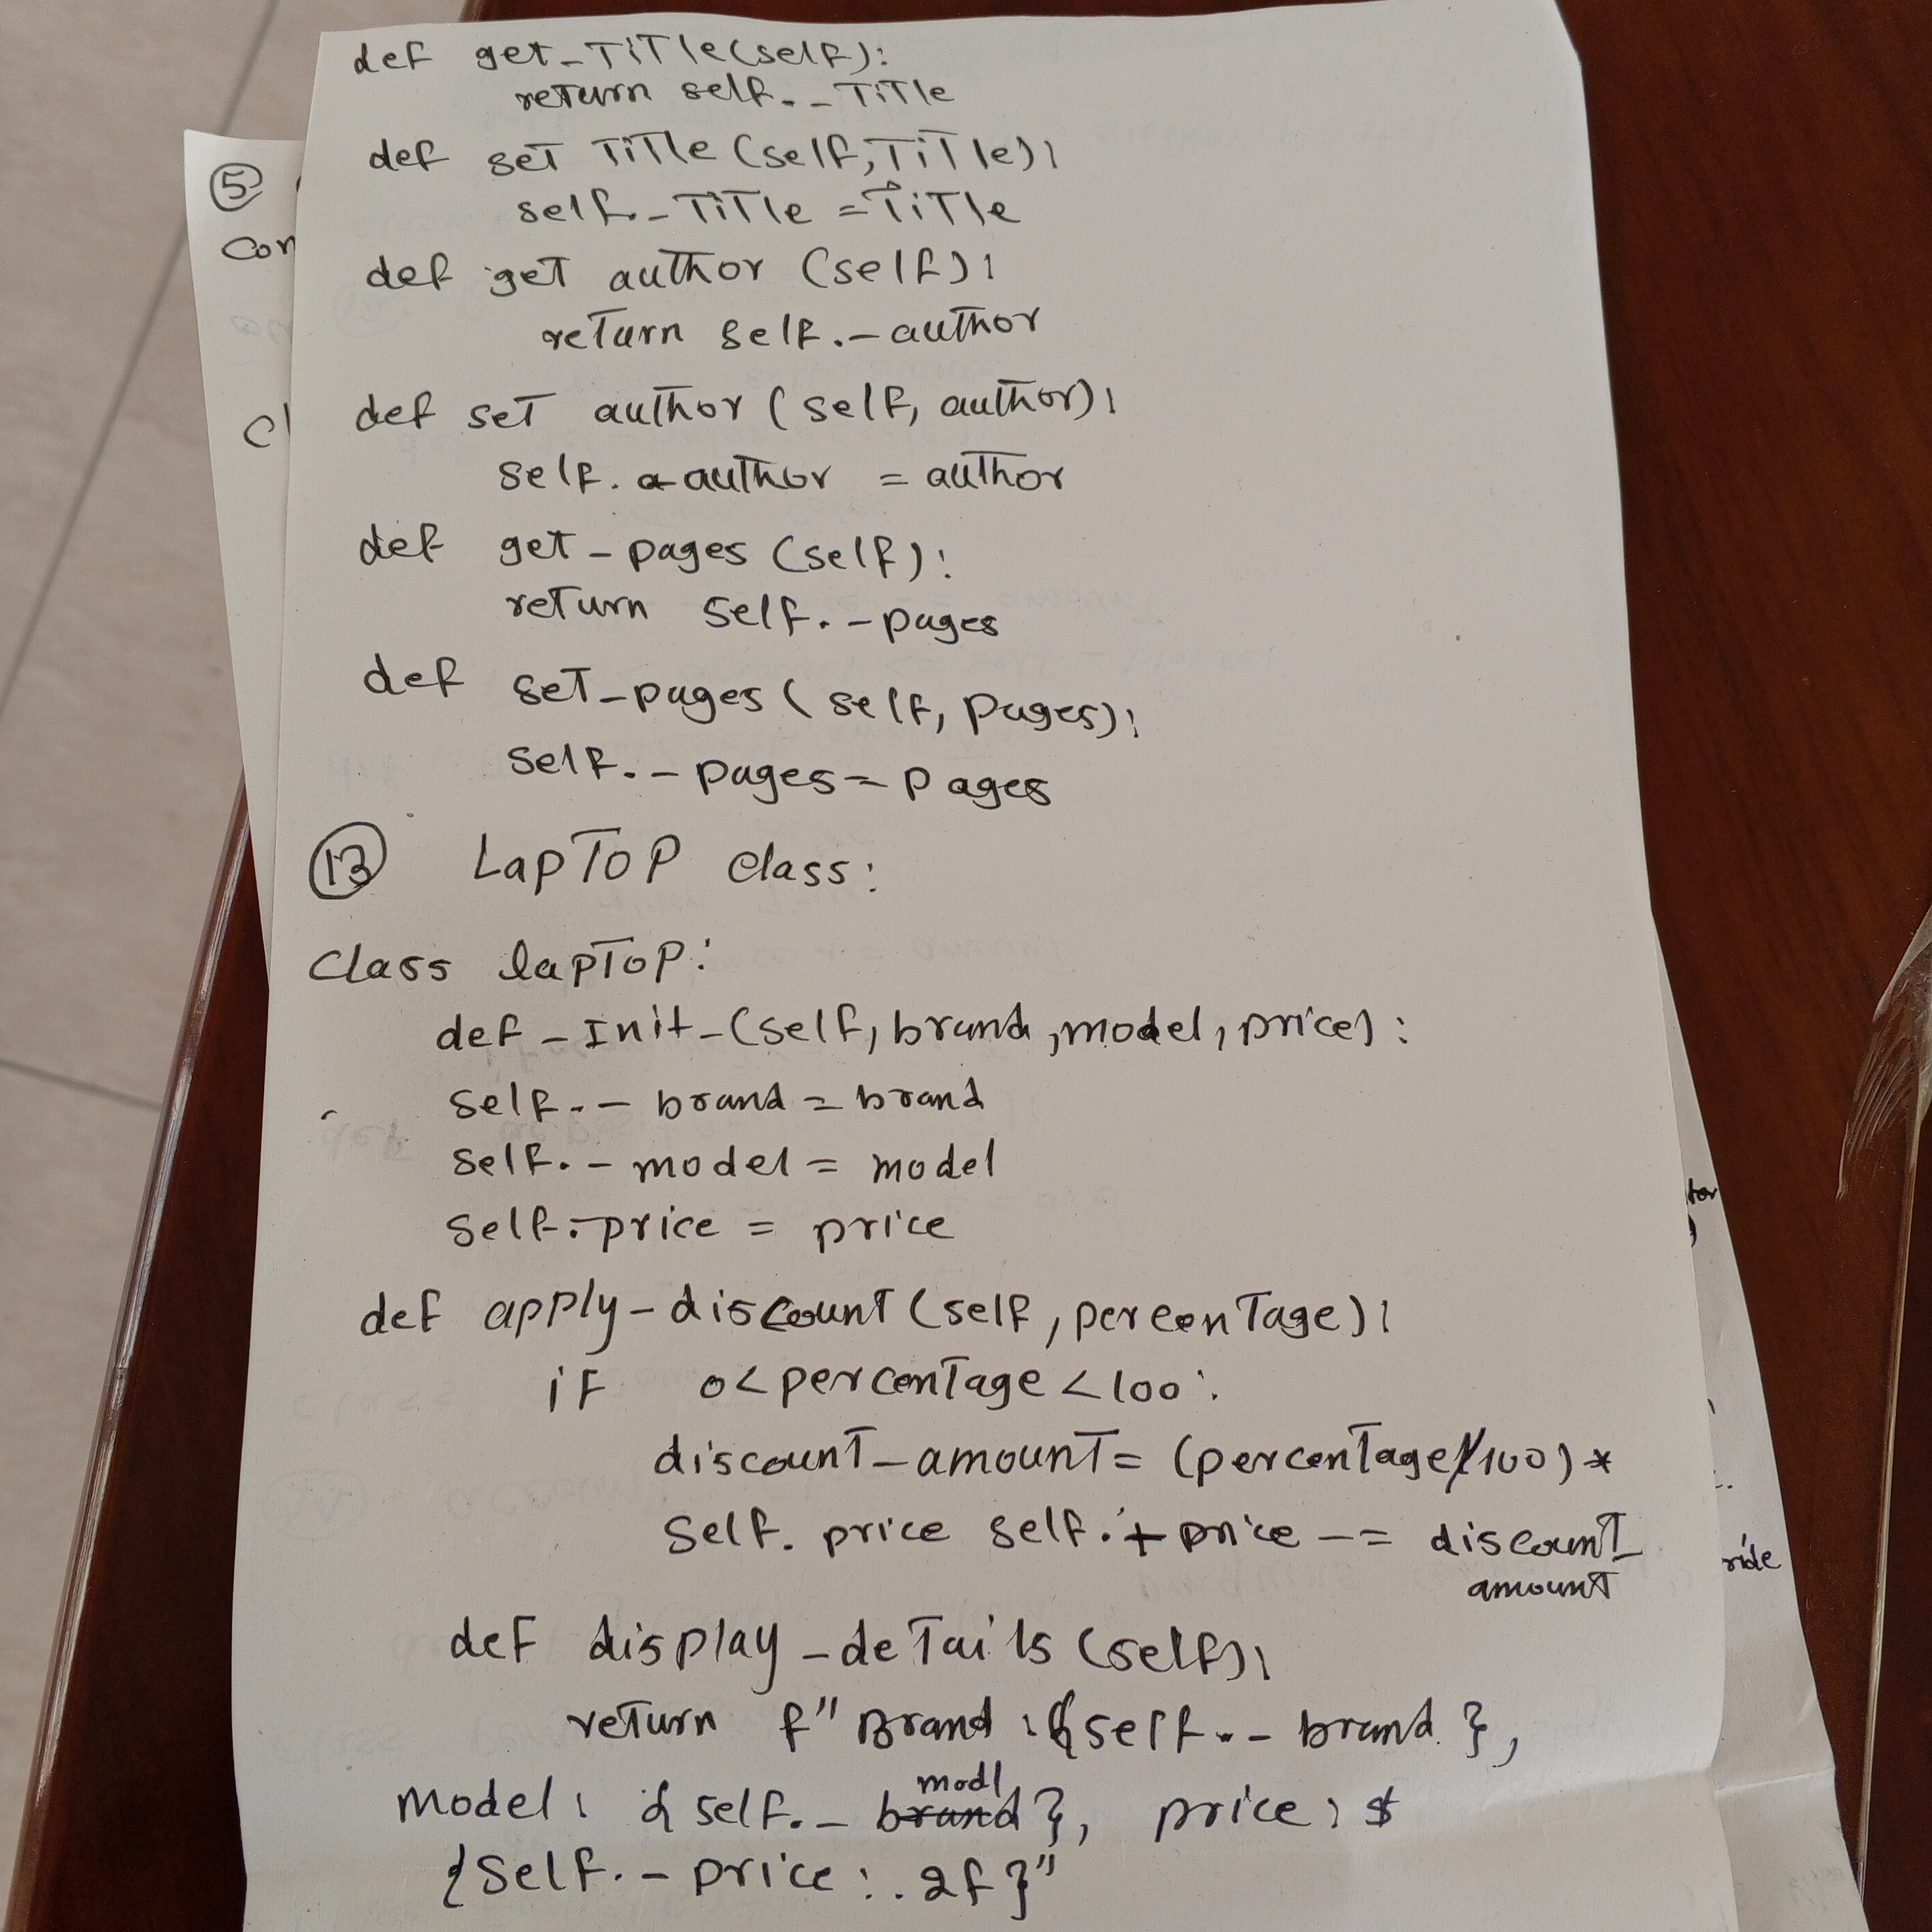 def get_TiTle(self):
return self.__TiTle
def seT TiTle (self,TiTle):
self._TiTle =TiTle
def geT auThor (self):
reTurn self._auThor
def seT auThor (self, auThor):
self. a auThor = auThor
def get_pages (self):
reTurn self._pages
def seT_pages (self, pages):
self._pages=pages
13 LapToP class:
class lapToP:
def _Init_(self,brand,model,price):
self.__brand=brand
self._model=model
self._price = price
def apply_discounT(self,percenTage):
if 0<percenTage<100:
discounT_amounT=(percenTage/100)*
self. price self.+price -= discounT_
amounT
def display_deTails (self):
reTurn f"Brand:{self.__brand},
model: {self._brand modl}, price: $
{self._price:.2f}"
5
Con
cl
for
)
ride